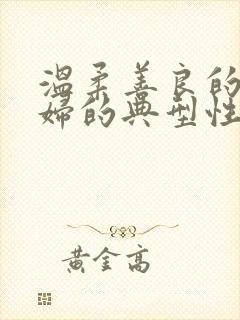 温柔善良的
婦的典型性
黄金高